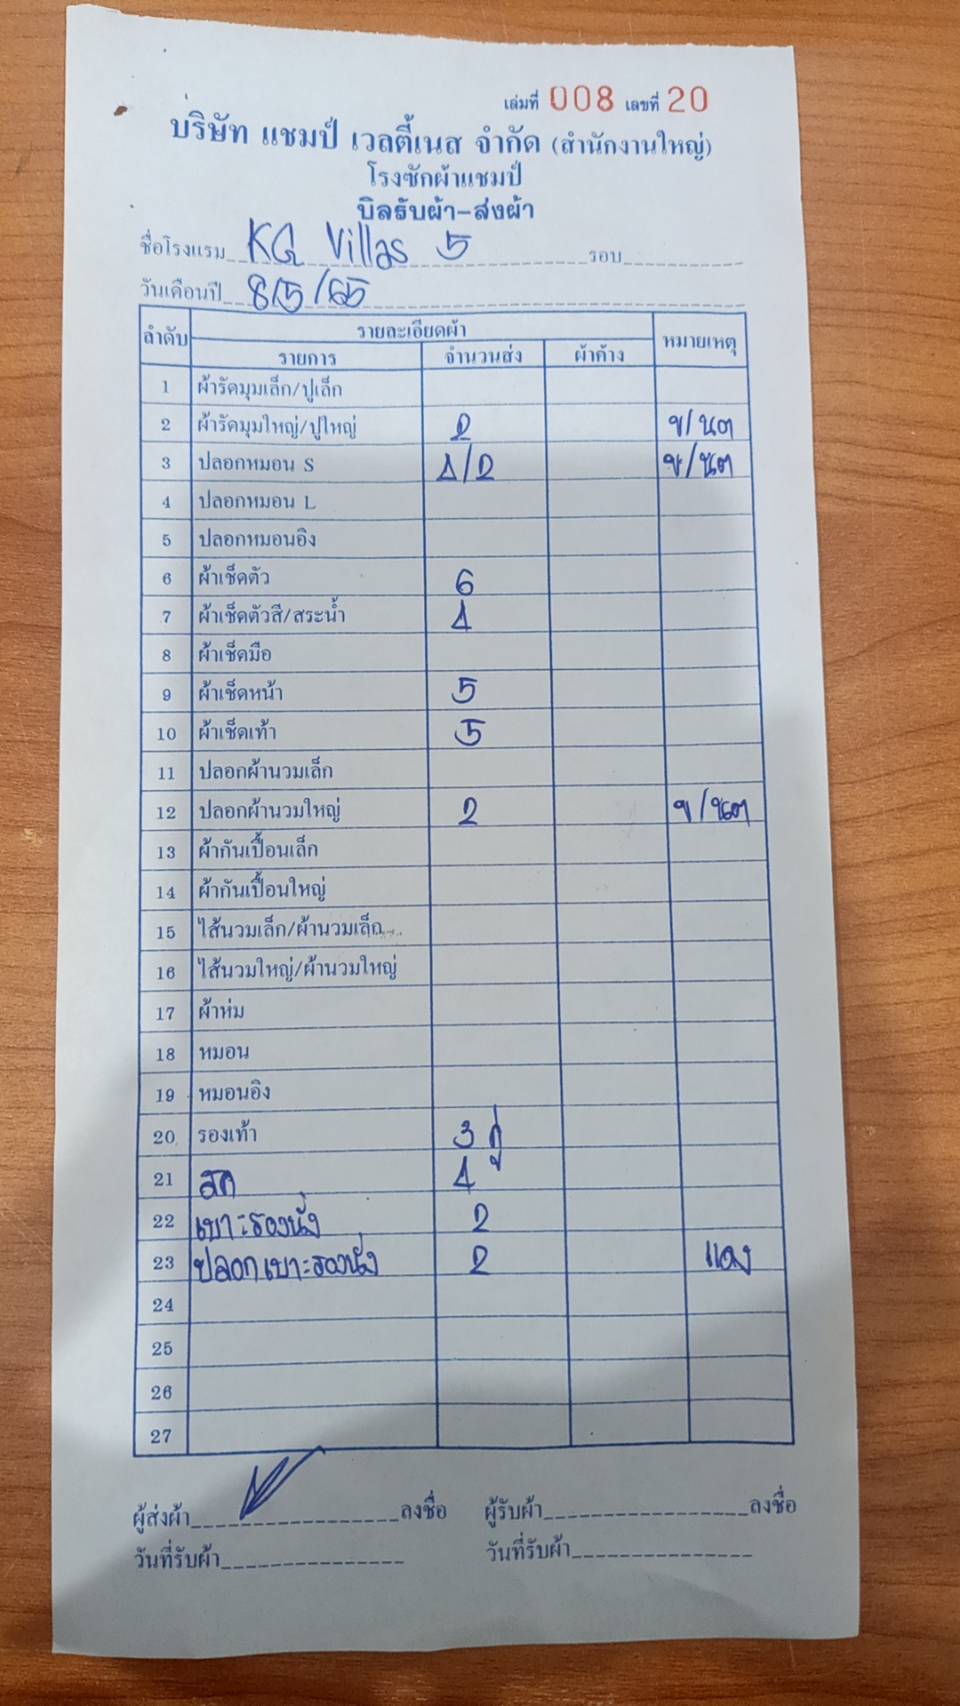 เล่มที่ 008 เลขที่ 20
บริษัท แชมป์ เวลตี้เนส จำกัด (สำนักงานใหญ่)
โรงซักผ้าแชมป์
บิลรับผ้า-ส่งผ้า
ชื่อโรงแรม KG Villas 5 รอบ
วันเดือนปี 8/5/65
ลำดับ รายละเอียดผ้า หมายเหตุ
รายการ จำนวนส่ง ผ้าค้าง
1 ผ้ารัดมุมเล็ก/ปูเล็ก
2 ผ้ารัดมุมใหญ่/ปูใหญ่ 2 ข/นต
3 ปลอกหมอน S 4/2 ข/นต
4 ปลอกหมอน L
5 ปลอกหมอนอิง
6 ผ้าเช็ดตัว 6
7 ผ้าเช็ดตัวสี/สระน้ำ 4
8 ผ้าเช็ดมือ
9 ผ้าเช็ดหน้า 5
10 ผ้าเช็ดเท้า 5
11 ปลอกผ้านวมเล็ก
12 ปลอกผ้านวมใหญ่ 2 ข/นต
13 ผ้ากันเปื้อนเล็ก
14 ผ้ากันเปื้อนใหญ่
15 ไส้นวมเล็ก/ผ้านวมเล็ก
16 ไส้นวมใหญ่/ผ้านวมใหญ่
17 ผ้าห่ม
18 หมอน
19 หมอนอิง
20 รองเท้า 3 คู่
21 4
22 เบาะรองนั่ง 2
23 ปลอกเบาะรองนั่ง 2 แดง
24
25
26
27
ผู้ส่งผ้า ลงชื่อ ผู้รับผ้า ลงชื่อ
วันที่รับผ้า วันที่รับผ้า